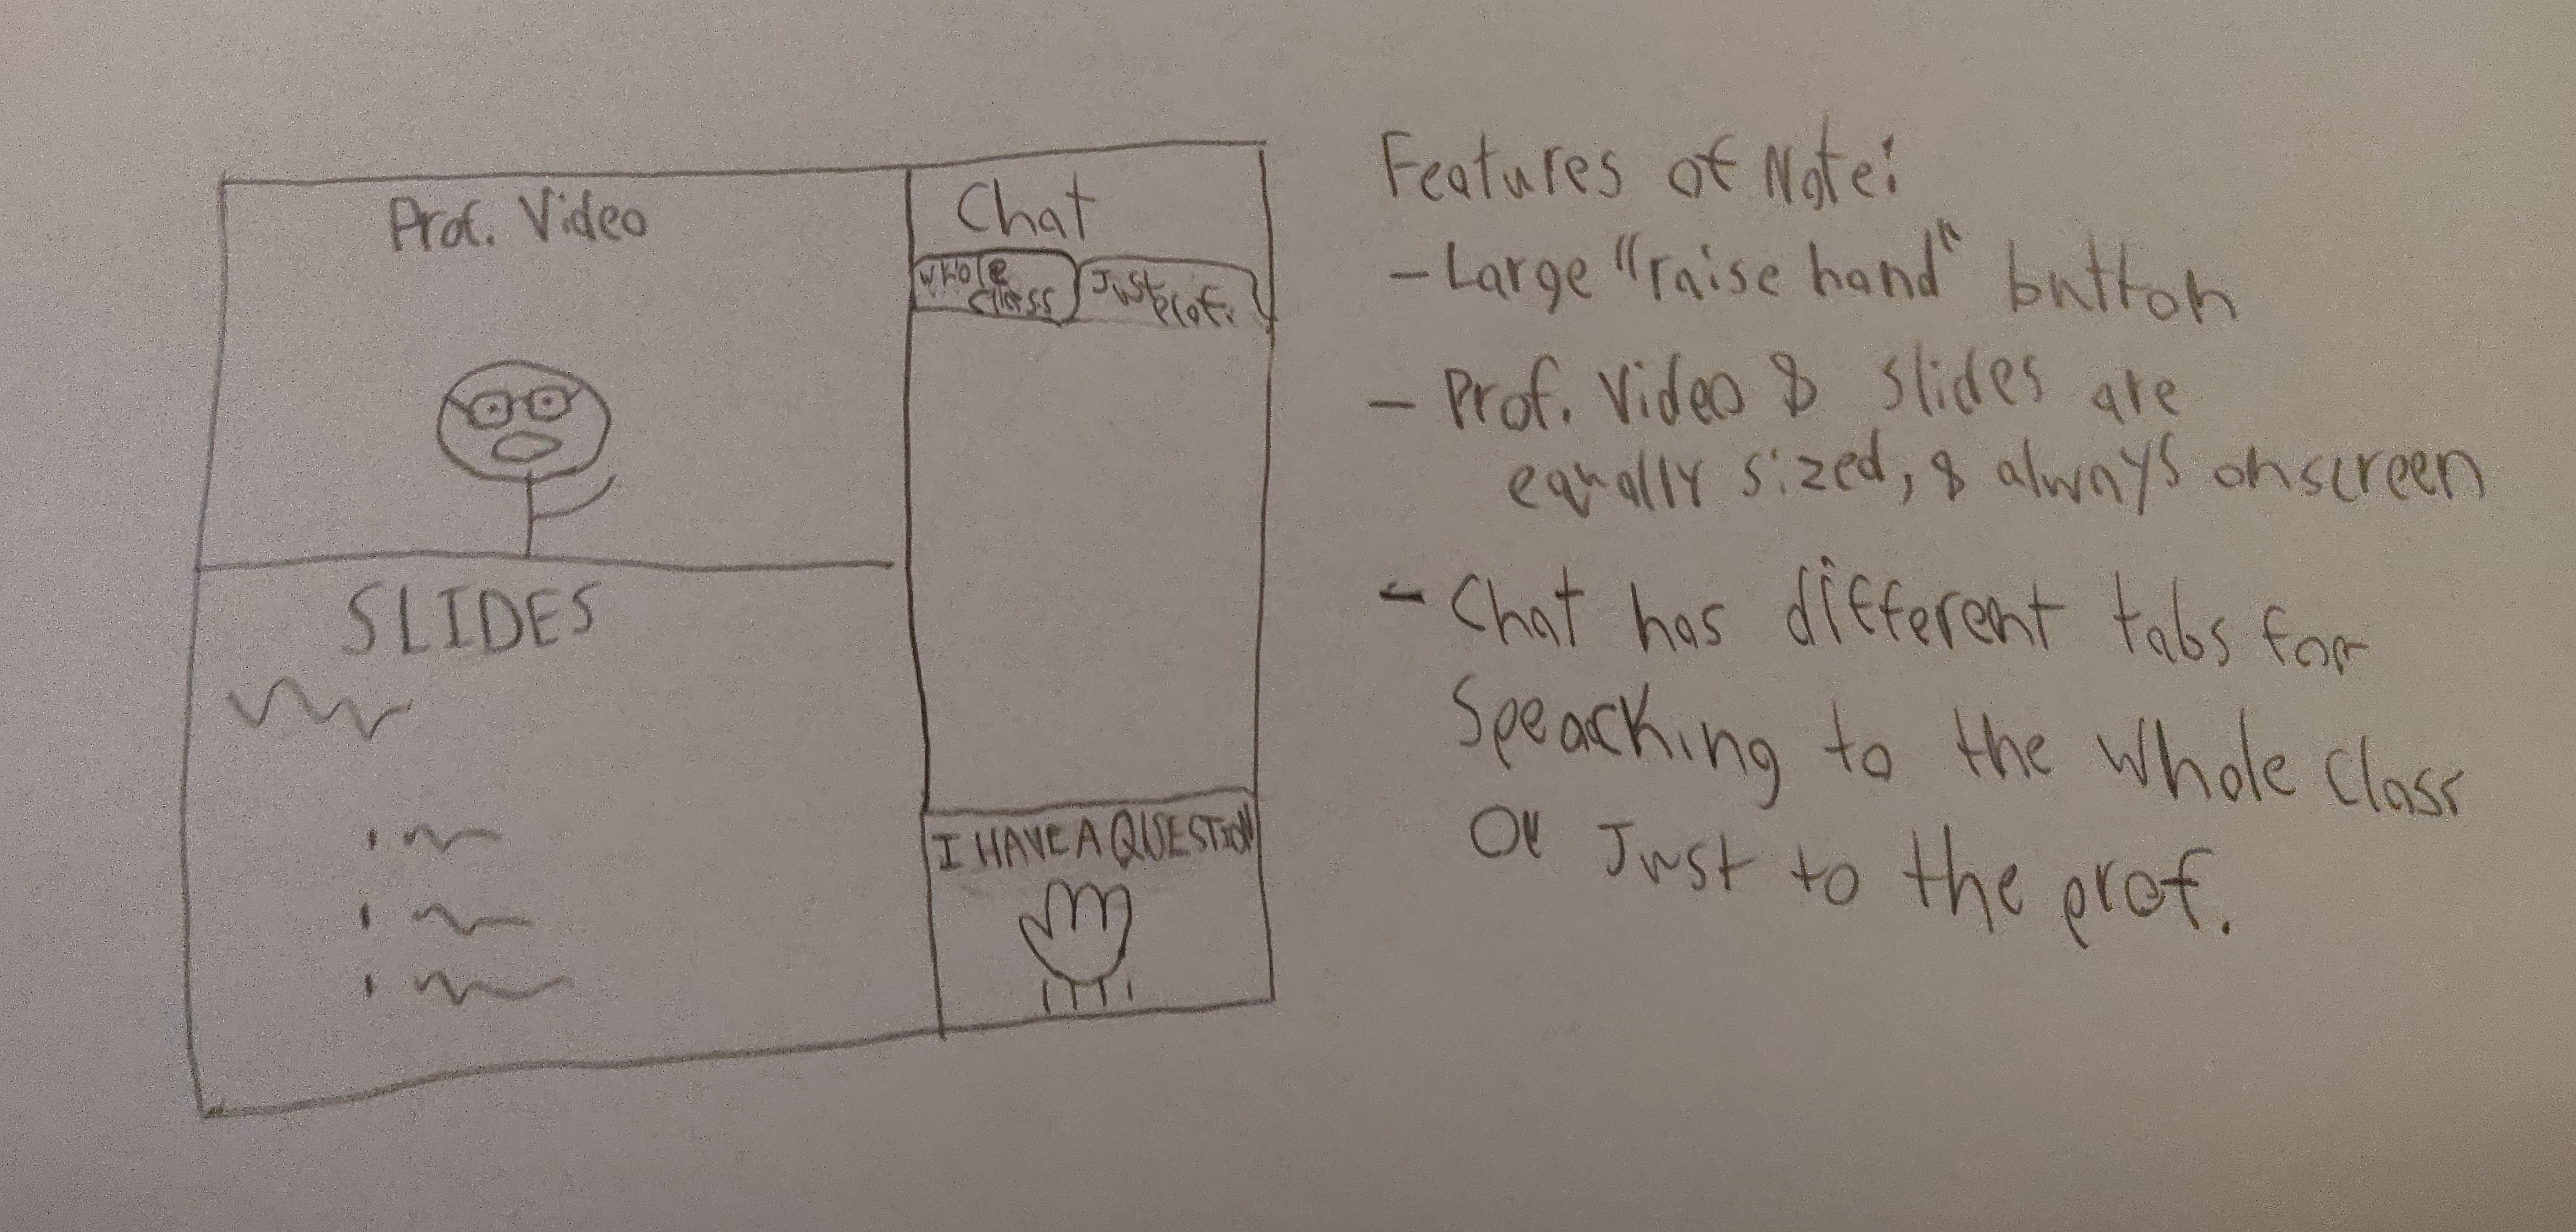 Prof. Video
Chat
Whole
Class
Just
Prof.
SLIDES
I HAVE A QUESTION
Features of Note:
- Large "raise hand" button
- Prof. Video & slides are
equally sized, & always onscreen
- Chat has different tabs for
Speacking to the whole class
or Just to the prof.